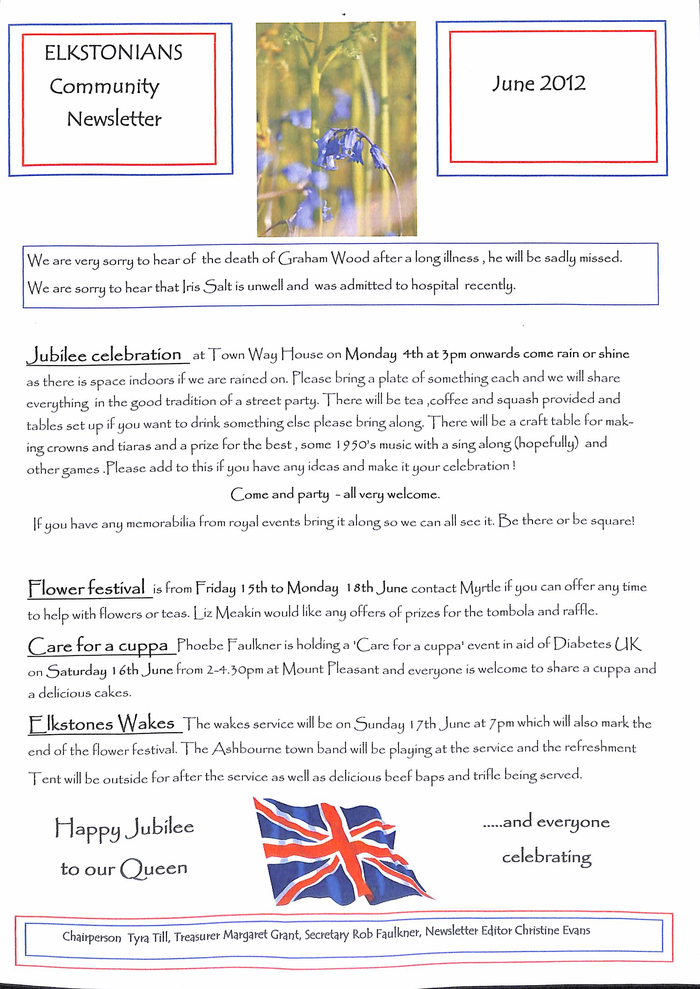 ELKSTONIANS
Community
Newsletter
June 2012
We are very sorry to hear of the death of Graham Wood after a long illness , he will be sadly missed.
We are sorry to hear that Iris Salt is unwell and was admitted to hospital recently.
Jubilee celebration at Town Way House on Monday 4th at 3pm onwards come rain or shine
as there is space indoors if we are rained on. Please bring a plate of something each and we will share
everything in the good tradition of a street party. There will be tea ,coffee and squash provided and
tables set up if you want to drink something else please bring along. There will be a craft table for mak-
ing crowns and tiaras and a prize for the best , some 1950's music with a sing along (hopefully) and
other games .Please add to this if you have any ideas and make it your celebration !
Come and party - all very welcome.
If you have any memorabilia from royal events bring it along so we can all see it. Be there or be square!
Flower festival is from Friday 15th to Monday 18th June contact Myrtle if you can offer any time
to help with flowers or teas. Liz Meakin would like any offers of prizes for the tombola and raffle.
Care for a cuppa Phoebe Faulkner is holding a 'Care for a cuppa' event in aid of Diabetes UK
on Saturday 16th June from 2-4.30pm at Mount Pleasant and everyone is welcome to share a cuppa and
a delicious cakes.
Elkstones Wakes The wakes service will be on Sunday 17th June at 7pm which will also mark the
end of the flower festival. The Ashbourne town band will be playing at the service and the refreshment
Tent will be outside for after the service as well as delicious beef baps and trifle being served.
Happy Jubilee
to our Queen
.....and everyone
celebrating
Chairperson Tyra Till, Treasurer Margaret Grant, Secretary Rob Faulkner, Newsletter Editor Christine Evans